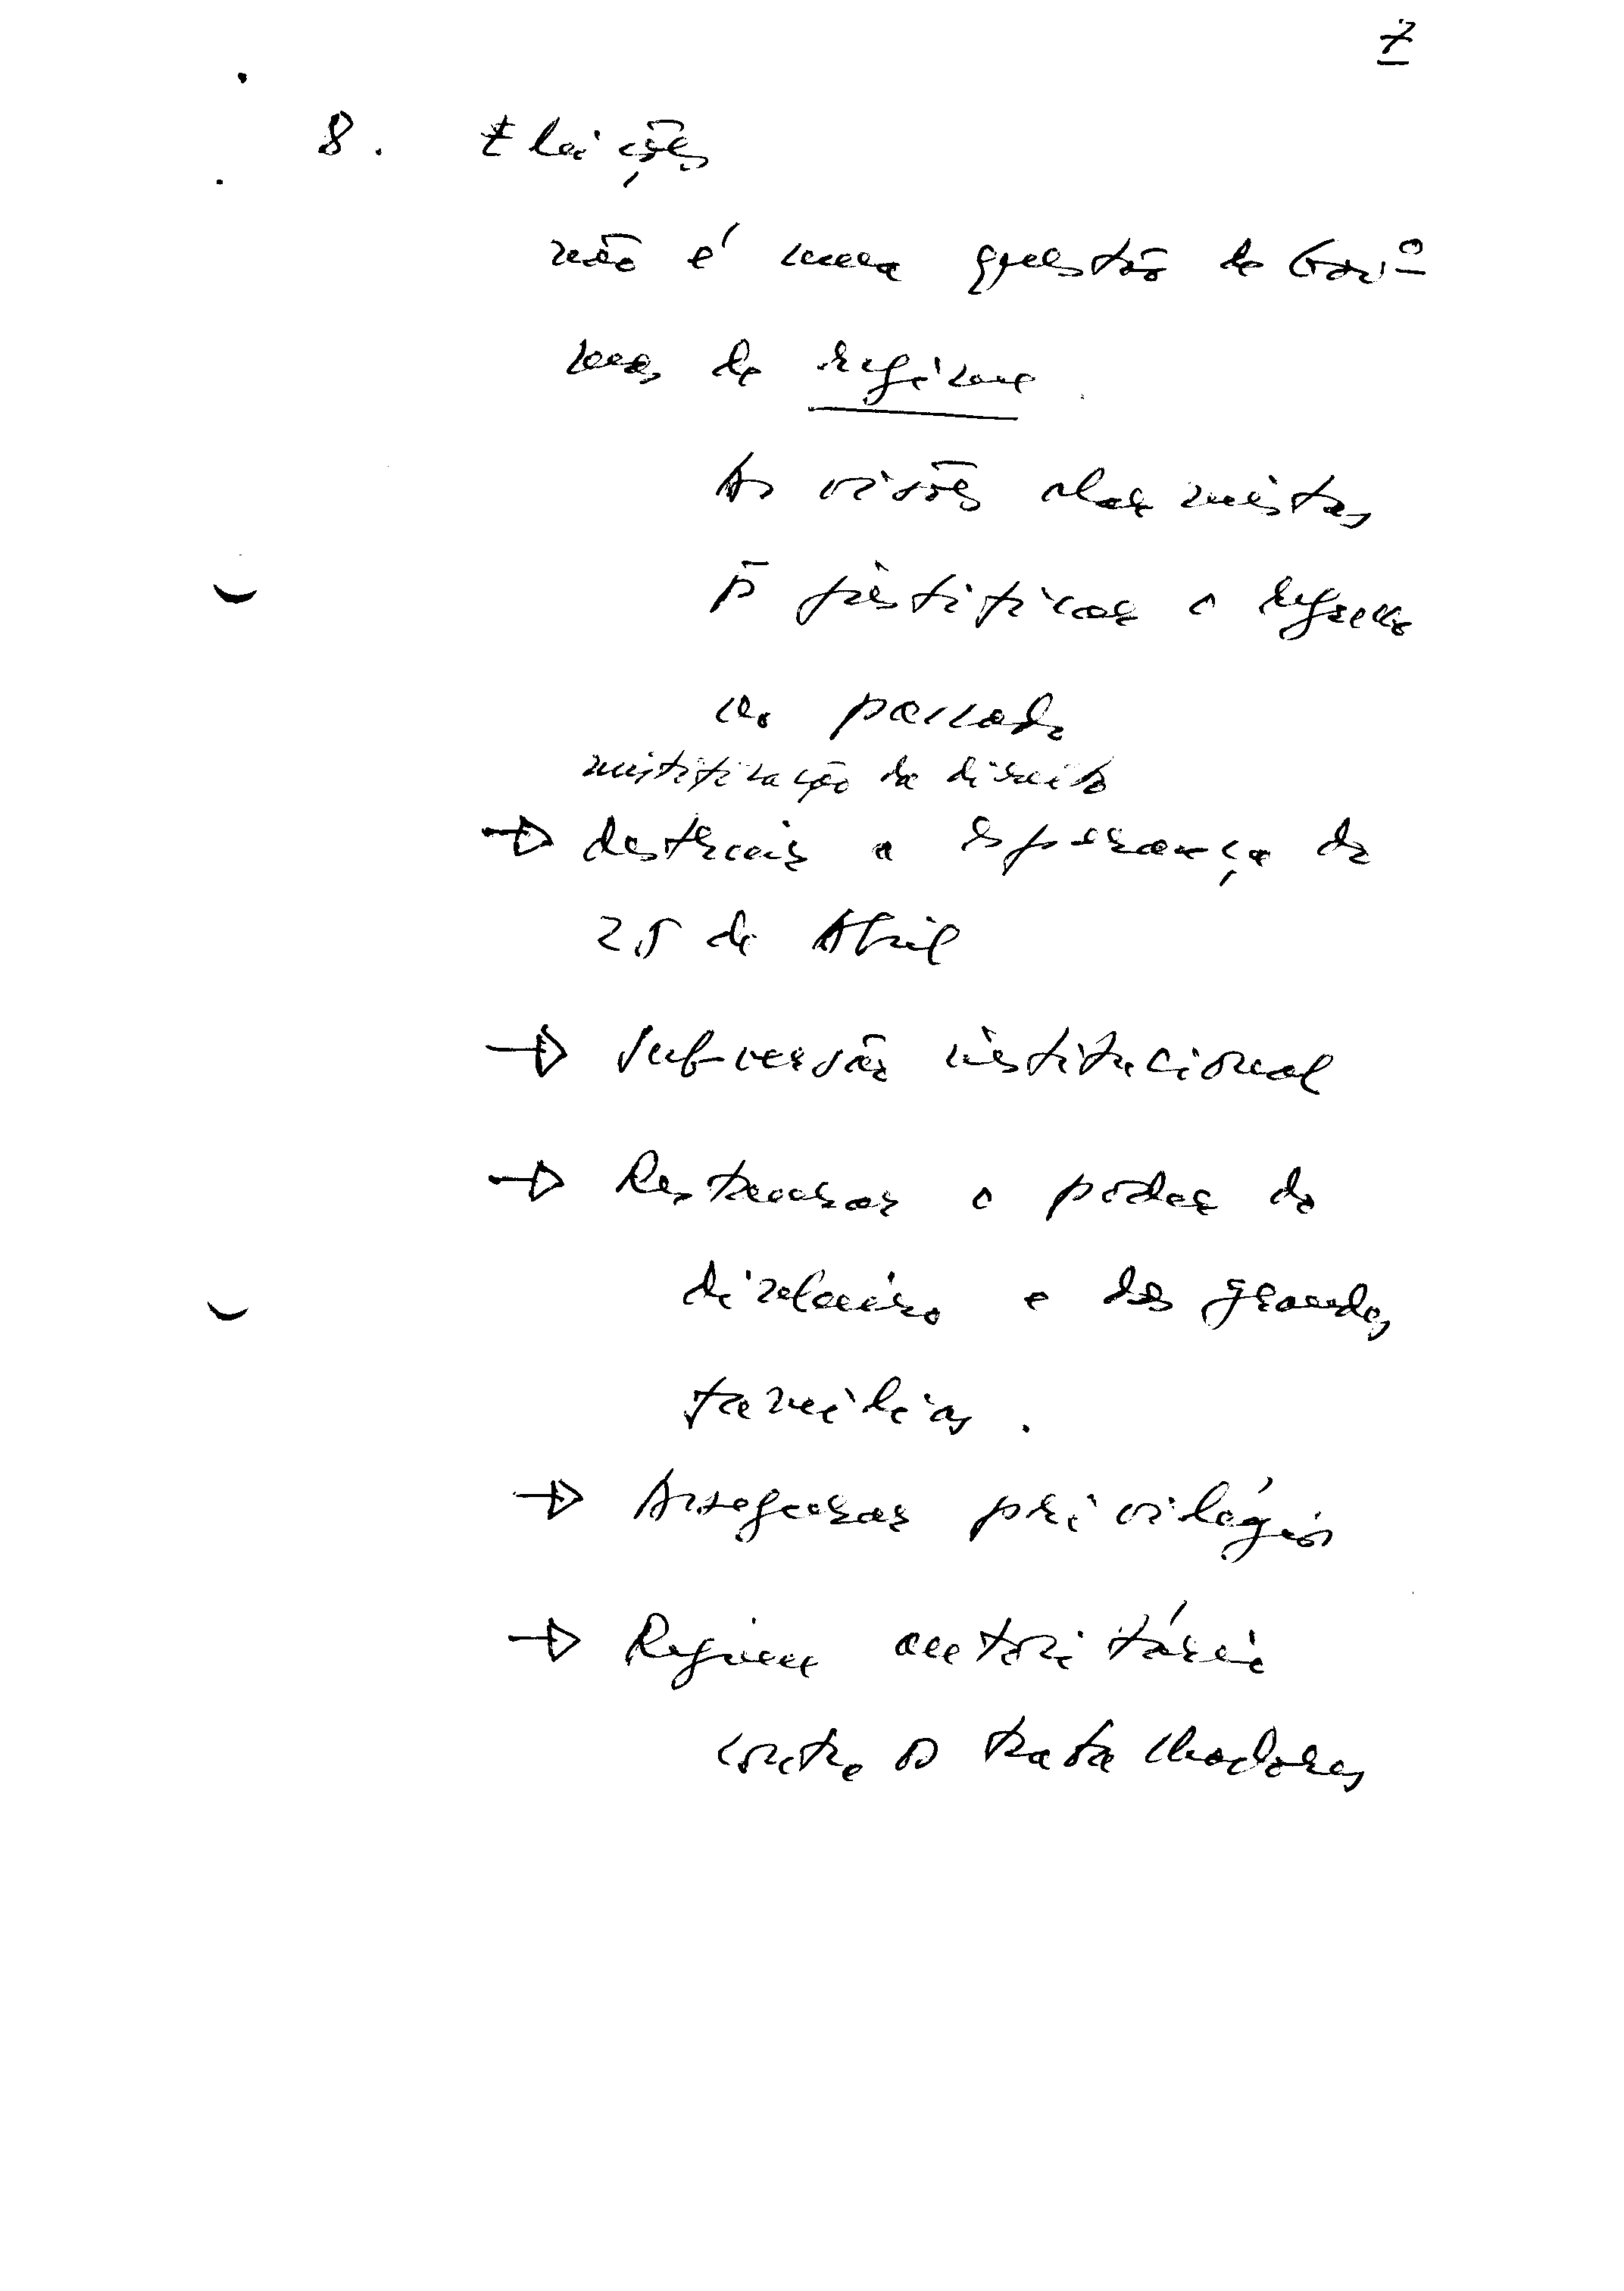 7
8. Eleições
não é uma questão de Govº
mas de regime.
As visões alarmistas
p̄ justificar o regresso
ao passado
mistificação da direita
→ destruir a esperança de
25 de Abril
→ Subversão institucional
→ Restaurar o poder do
dinheiro e das grandes
famílias.
→ Assegurar privilégios
→ Regime autoritário
contra os trabalhadores